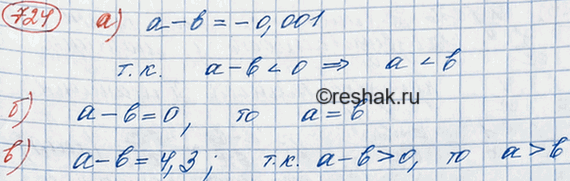 724 а) a-b=-0,001
т.к. a-b<0 ⇒ a<b
©reshak.ru
б) a-b=0, то a=b
в) a-b=4,3; т.к. a-b>0, то a>b